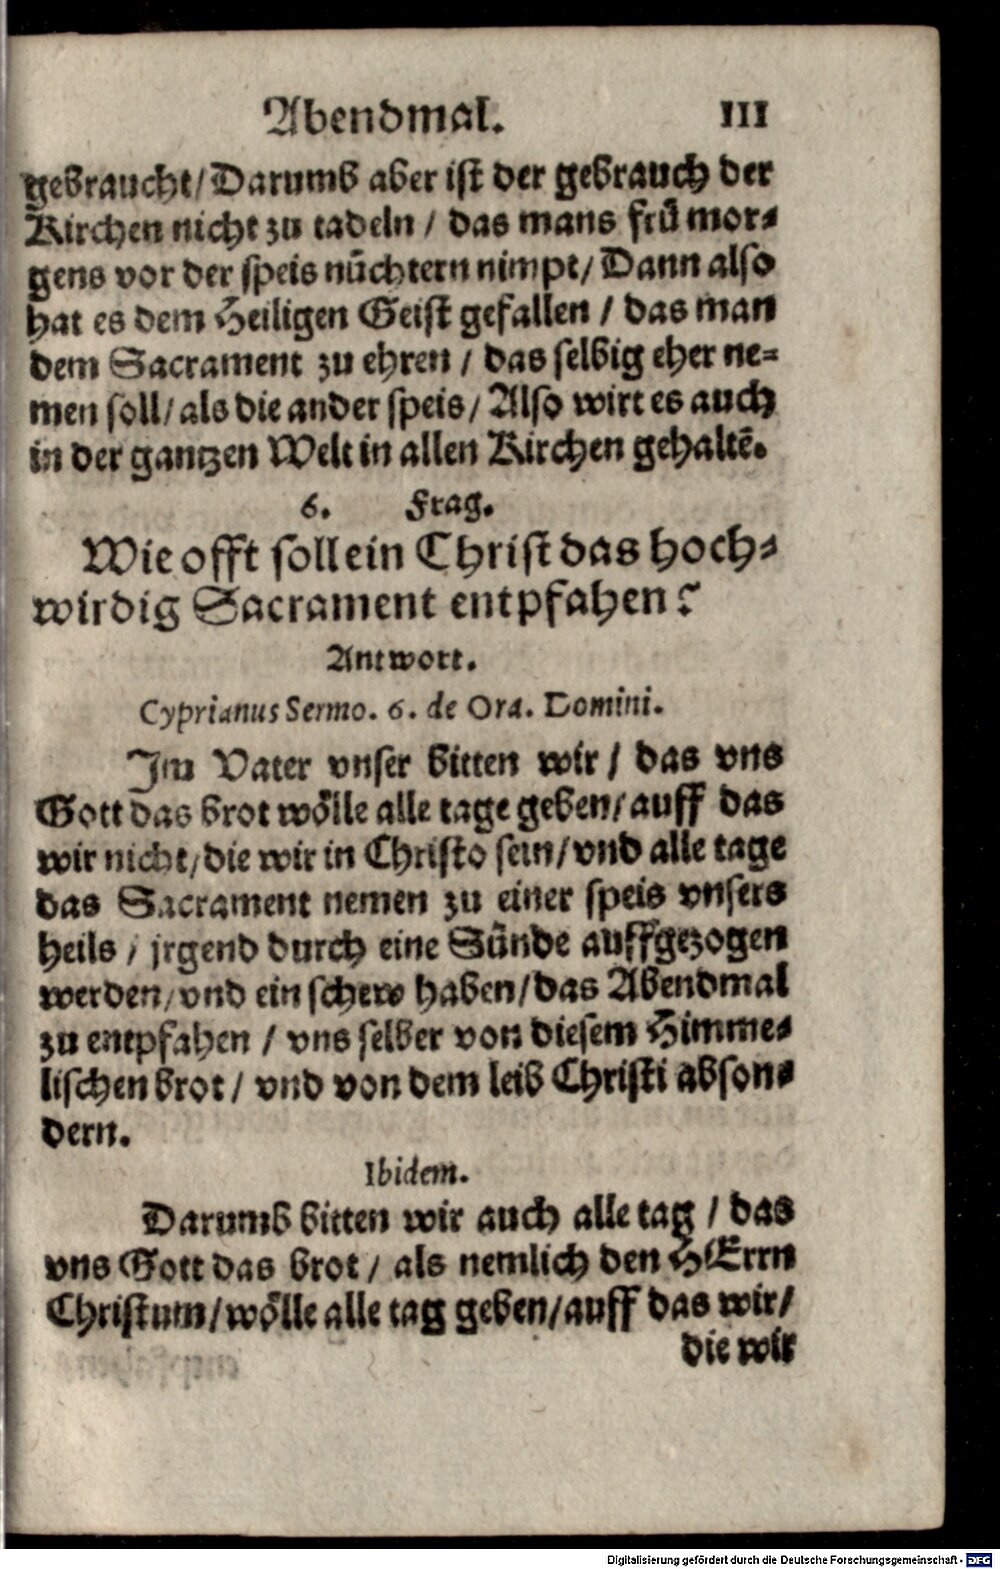 Abendmal. 111
gebraucht/Darumb aber ist der gebrauch der
Kirchen nicht zu tadeln / das mans frü mor-
gens vor der speis nüchtern nimpt/Dann also
hat es dem Heiligen Geist gefallen / das man
dem Sacrament zu ehren / das selbig eher ne-
men soll/als die ander speis/Also wirt es auch
in der gantzen Welt in allen Kirchen gehaltē.
6. Frag.
Wie offt soll ein Christ das hoch-
wirdig Sacrament entpfahen?
Antwort.
Cyprianus Sermo. 6. de Ora. Domini.
Im Vater vnser bitten wir / das vns
Gott das brot wölle alle tage geben/auff das
wir nicht/die wir in Christo sein/vnd alle tage
das Sacrament nemen zu einer speis vnsers
heils / jrgend durch eine Sünde auffgezogen
werden/vnd ein schew haben/das Abendmal
zu entpfahen / vns selber von diesem Himme-
lischen brot / vnd von dem leib Christi abson-
dern.
Ibidem.
Darumb bitten wir auch alle tag / das
vns Gott das brot / als nemlich den HErrn
Christum/wölle alle tag geben/auff das wir/
die wir
Digitalisierung gefördert durch die Deutsche Forschungsgemeinschaft - DFG